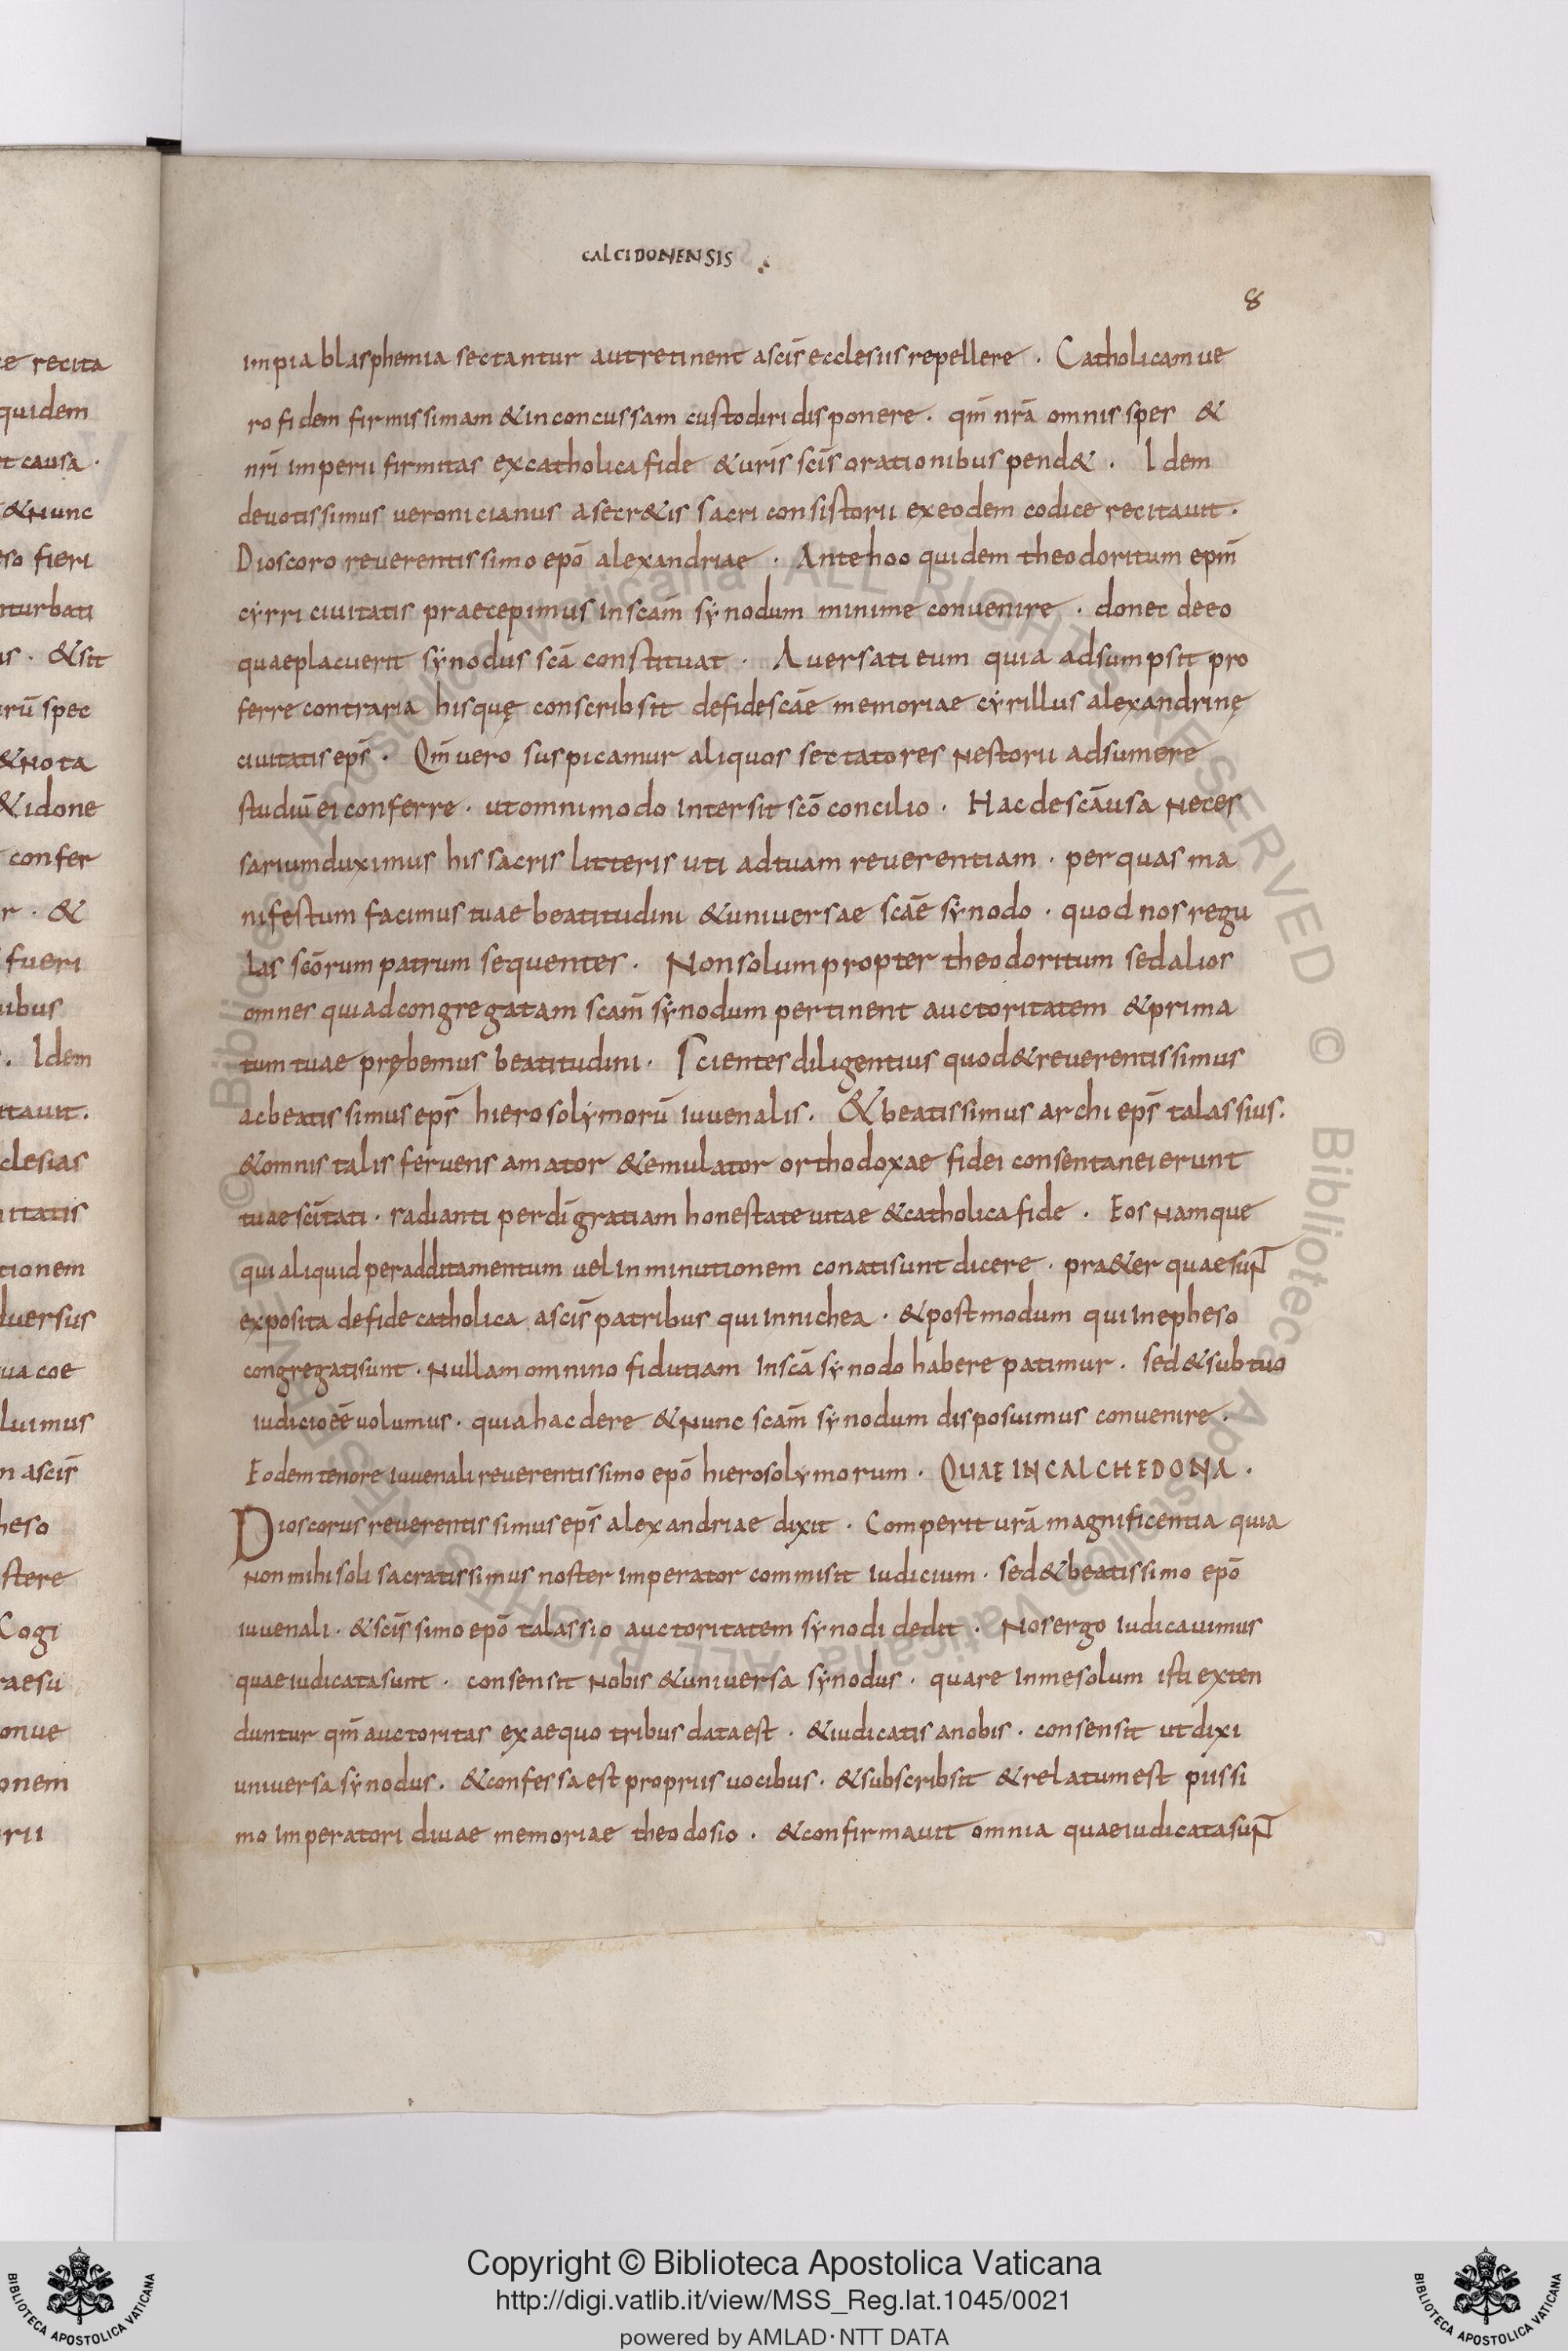 CALCIDONENSIS
8
impia blasphemia sectantur aut retinent a scīs ecclesiis repellere . Catholicam ue
ro fidem firmissimam & inconcussam custodiri disponere . qm̄ nr̄a omnis spes &
nr̄i imperii firmitas ex catholica fide & ur̄is scīs orationibus pend& . Idem
deuotissimus ueronicianus a secr&is sacri consistorii ex eodem codice recitauit .
Dioscoro reuerentissimo epō alexandriae . Ante hoo quidem theodoritum epm̄
cyrri ciuitatis praecepimus in scam̄ synodum minime conuenire . donec de eo
quae placuerit synodus scā constituat . Auersati eum quia adsumpsit pro
ferre contraria hisquę conscribsit de fide scāe memoriae cyrillus alexandrinę
ciuitatis eps̄ . Qm̄ uero suspicamur aliquos sectatores nestorii adsumere
studiū ei conferre . ut omnimodo intersit scō concilio . Hac de scāusa neces
sarium duximus his sacris litteris uti ad tuam reuerentiam . per quas ma
nifestum facimus tuae beatitudini & uniuersae scāe synodo . quod nos regu
las scōrum patrum sequentes . Non solum propter theodoritum sed alios
omnes qui ad congregatam scam̄ synodum pertinent auctoritatem & prima
tum tuae prębemus beatitudini . Scientes diligentius quod & reuerentissimus
ac beatissimus eps̄ hierosolymorū iuuenalis . & beatissimus archieps̄ talassius .
& omnis talis feruens amator & emulator orthodoxae fidei consentanei erunt
tuae scītati . radianti per dī gratiam honestate uitae & catholica fide . Eos namque
qui aliquid per additamentum uel inminutionem conati sunt dicere . pra&er quae sun̄
exposita de fide catholica a scīs patribus qui in nichea . & postmodum qui in epheso
congregati sunt . nullam omnino fidutiam in scā synodo habere patimur . sed & sub tuo
iudicio eē uolumus . quia hac de re & nunc scam̄ synodum disposuimus conuenire .
Eodem tenore iuuenali reuerentissimo epō hierosolymorum . QUAE IN CALCHEDONA .
Dioscorus reuerentissimus eps̄ alexandriae dixit . Comperit ur̄a magnificentia quia
non mihi soli sacratissimus noster imperator commisit iudicium . sed & beatissimo epō
iuuenali . & scīssimo epō talassio auctoritatem synodi dedit . Nos ergo iudicauimus
quae iudicata sunt . consensit nobis & uniuersa synodus . quare in me solum isti exten
duntur qm̄ auctoritas ex aequo tribus data est . & iudicatis a nobis . consensit ut dixi
uniuersa synodus . & confessa est propriis uocibus . & subscribsit & relatum est piissi
mo imperatori diuae memoriae theodosio . & confirmauit omnia quae iudicata sun̄
ce recita
quidem
it causa .
& nunc
so fieri
nturbati
us . & sit
rū spec
& nota
& idone
confer
r . &
fueri
ibus
. Idem
itauit .
clesias
itatis
tionem
duersus
ua coe
luimus
n a scīs
heso
stere
Cogi
raesu
onue
onem
rii
Copyright © Biblioteca Apostolica Vaticana
http://digi.vatlib.it/view/MSS_Reg.lat.1045/0021
powered by AMLAD · NTT DATA
BIBLIOTECA APOSTOLICA VATICANA
BIBLIOTECA APOSTOLICA VATICANA